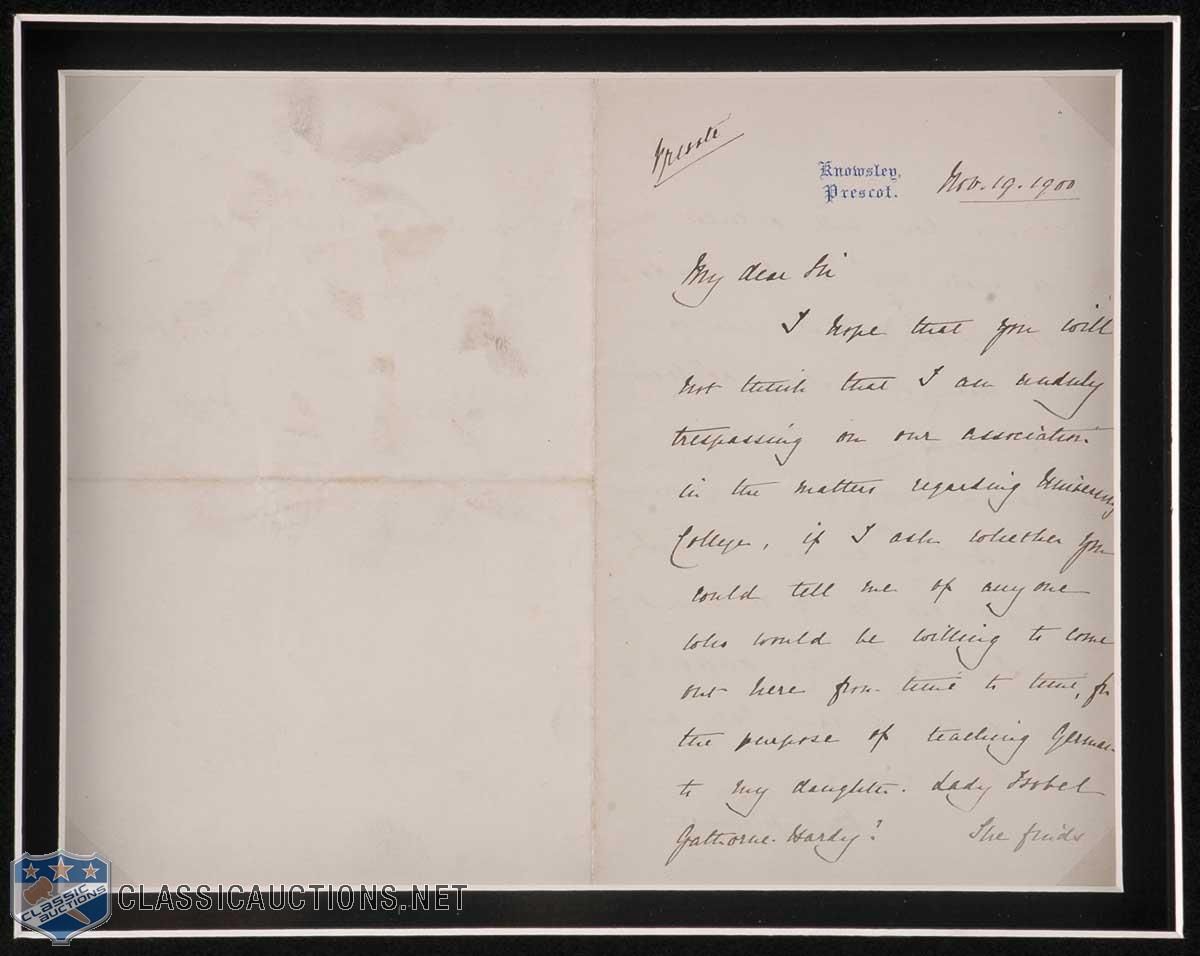 Private
Knowsley,
Prescot.
Nov. 19. 1900
My dear Sir
I hope that you will
not think that I am unduly
trespassing on our association
in the matters regarding University
College, if I ask whether you
could tell me of any one
who would be willing to come
out here from time to time, for
the purpose of teaching German
to my daughter. Lady Isobel
Gathorne-Hardy? She finds
CLASSIC
AUCTIONS
CLASSICAUCTIONS.NET